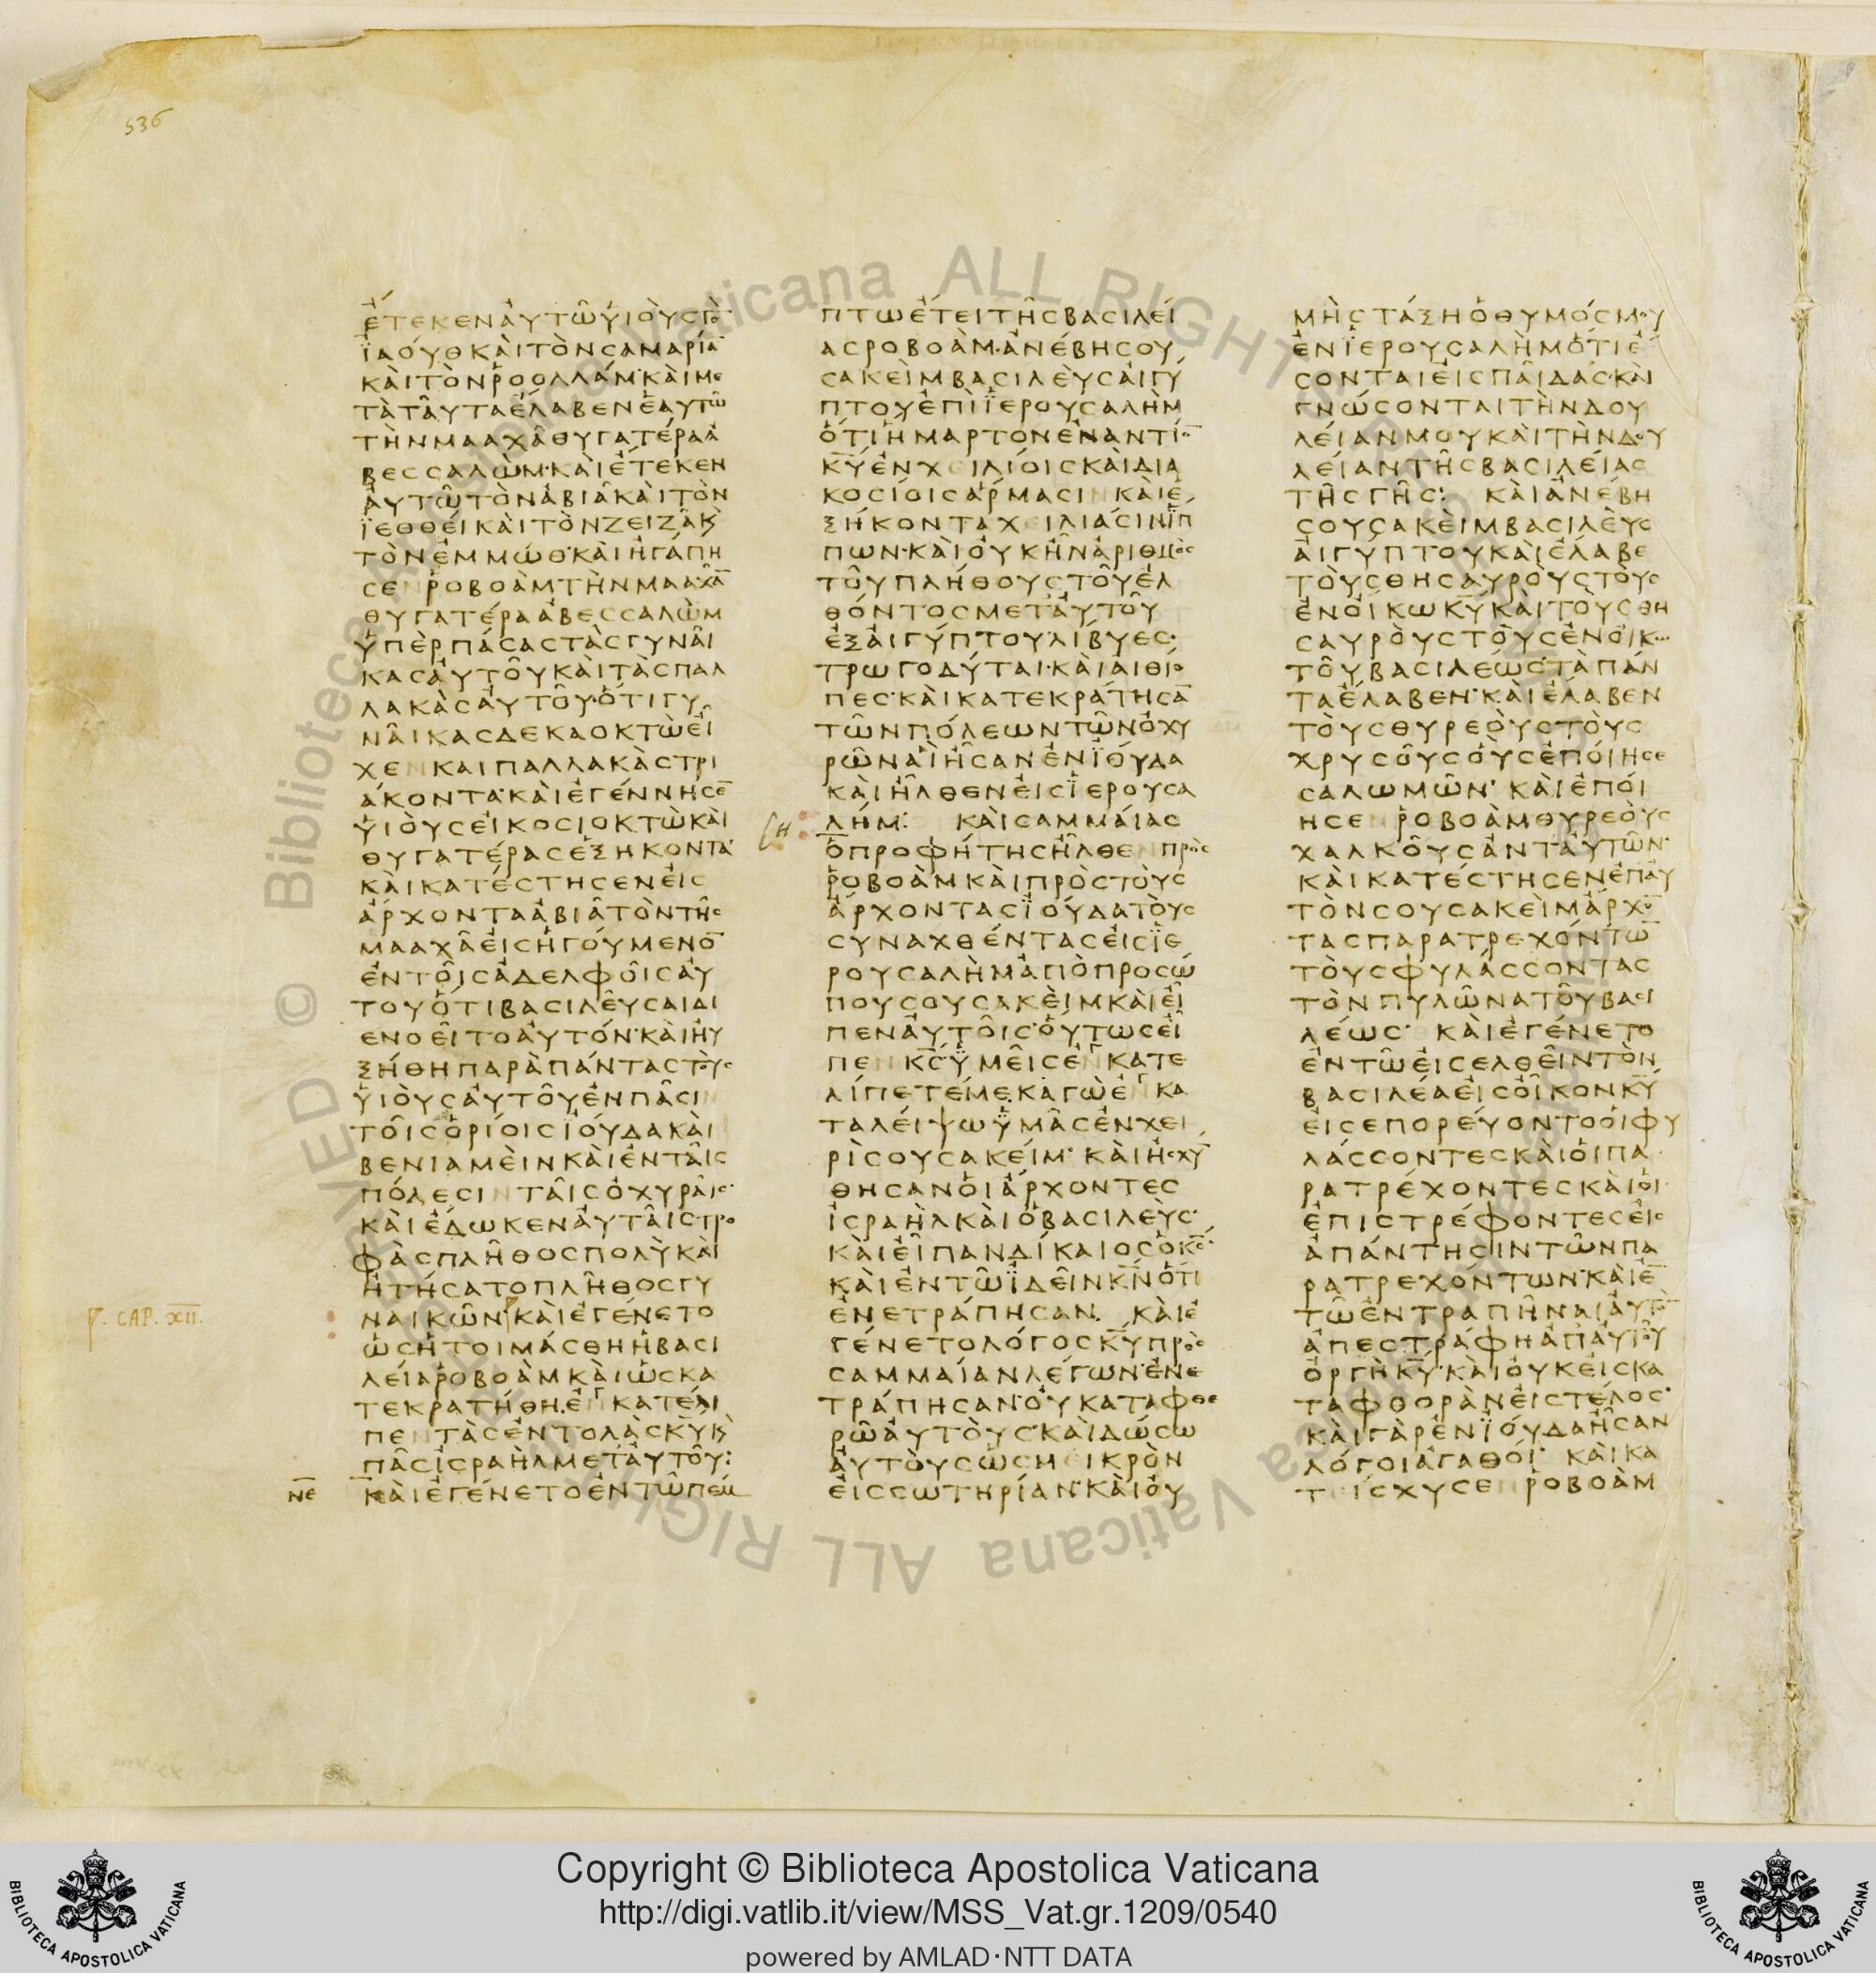 536
ἐτεκεναὐτῶυἱοὺςτὸ̅
ϊαοὺθκαὶτὸνσαμαρία̅
καὶτὸνῥοολλάμ·καὶμε
τὰταῦταἔλαβενἑαυτῶ
τὴνμααχᾶθυγατέραἀ
βεσσαλὼμ·καὶἔτεκεν
αὐτῶτὸνἀβιᾶκαὶτὸν
ϊεθθεὶκαὶτὸνζειζὰκϗ
τὸνἐμμώθ·καὶἠγάπη
σενῥοβοὰμτὴνμααχᾶ̅
θυγατέραἀβεσσαλὼμ
ὑπὲρπάσαςτὰςγυναῖ
καςαὐτοῦκαὶτὰςπαλ
λακὰςαὐτοῦ·ὅτιγυ
ναῖκαςδεκαοκτὼεἶ
χενκαιπαλλακὰςτρι
άκοντα·καὶἐγέννησε̅
υἱοὺςεἴκοσιοκτὼκαὶ
θυγατέραςἑξήκοντα·
καὶκατέστησενεἰς
ἄρχονταἀβιᾶτὸντῆς
μααχᾶεἰςἡγούμενο̅
ἐντοῖςἀδελφοῖςαὐ
τουὅτιβασιλεῦσαιδι
ενοεῖτοαὐτόν·καὶηὐ
ξήθηπαρὰπάνταςτοὺς
υἱοὺςαὐτοῦἐνπᾶσιν
τοῖςὁρίοιςϊούδακαὶ
βενιαμεὶνκαὶἐνταῖς
πόλεσινταῖςὀχυραῖς·
καὶἔδωκεναὐταῖςτρο
φὰςπλῆθοςπολὺκαὶ
ᾐτήσατοπλῆθοςγυ
ναικῶν·καὶἐγένετο
Γ. CAP. XII.
ὡςἡτοιμάσθηἡβασι
λείαῥοβοὰμκαὶὡςκα
τεκρατήθη.ἐνκατέλι
πεντὰςἐντολὰςκ̅υ̅ϗ
πᾶςἰσραὴλμεταὐτοῦ:
ΝΕ καὶἐγένετοἐντῶπέμ
πτωἔτειτῆςβασιλεί
αςροβοὰμ·ἀνέβησου
σακεὶμβασιλεὺςαἰγύ
πτουἐπὶϊερουσαλὴμ
ὅτιἥμαρτονἐναντίο̅
κ̅υ̅ἐνχειλίοιςκαὶδια
κοσίοιςἅρμασινκαὶἑ
ξήκονταχειλιάσινἵπ
πων·καὶοὐκἦνἀριθμὸς
τοῦπλήθουςτοῦἐλ
θόντοςμεταὐτοῦ
ἐξαἰγύπτουλίβυες·
τρωγοδύται·καὶαἰθίο
πες·καὶκατεκράτησα̅
τῶνπόλεωντῶνὀχυ
ρῶναἳἦσανἐνϊούδα
καὶἦλθενεἰςϊερουσα
Η λήμ: καὶσαμμαίας
ὁπροφήτηςἦλθενπρὸς
ῥοβοὰμκαὶπρὸςτοὺς
ἄρχονταςϊούδατοὺς
συναχθένταςεἰςϊε
ρουσαλὴμἀπὸπροσώ
πουσουσακεὶμκαὶεἶ
πεναὐτοῖς·οὕτωςεἶ
πενκ̅ς̅ὑμεῖςἐνκατε
λίπετέμε.καγὼἐνκα
ταλείψωὑμᾶςἐνχει
ρὶσουσακείμ· καὶᾐσχύ̅
θησανοἱἄρχοντες
ἰσραὴλκαὶὁβασιλεύς·
καὶεἶπανδίκαιοςὁκ̅ς̅·
καὶἐντῶϊδεῖνκ̅ν̅ὅτι
ἐνετράπησαν. καὶἐ
γένετολόγοςκ̅υ̅πρὸς
σαμμαίανλέγων·ἐνε
τράπησαν·οὐκαταφθε
ρῶαὐτοὺς·καὶδώσω
αὐτοὺςὡςμεικρὸν
εἰςσωτηρίαν·καὶοὐ
μὴστάξηὁθυμόςμου
ἐνϊερουσαλὴμὅτιἔ
σονταιεἰςπαῖδας·καὶ
γνώσονταιτὴνδου
λείανμουκαὶτὴνδου
λείαντῆςβασιλείας
τῆςγῆς: καὶἀνέβη
σουσακεὶμβασιλεὺς
αἰγύπτουκαὶἔλαβε
τοὺςθησαυροὺςτοὺς
ἐνοίκωκ̅υ̅καὶτοὺςθη
σαυροὺςτοὺςἐνοἴκω
τοῦβασιλέωςτὰπάν
ταἔλαβεν·καὶἔλαβεν
τοὺςθυρεοὺςτοὺς
χρυσοῦςοὓςἐποίησε
σαλωμῶν· καὶἐποί
ησενῥοβοὰμθυρεοὺς
χαλκοῦςἀνταὐτῶν·
καὶκατέστησενἐπαὐ
τὸνσουσακεὶμἄρχο̅
ταςπαρατρεχόντω̅
τοὺςφυλάσσοντας
τὸνπυλῶνατοῦβασι
λέως· καὶἐγένετο
ἐντῶεἰσελθεῖντὸν
βασιλέαεἰςοἶκονκ̅υ̅
εἰσεπορεύοντοοἱφυ
λάσσοντεςκαὶοἱπα
ρατρέχοντεςκαὶοἱ
ἐπιστρέφοντεςεἰς
ἀπάντησιντῶνπα
ρατρεχόντων·καὶἐ̅
τῶἐντραπῆναιαὐτὸ̅
ἀπεστράφηἀπαὐτοῦ
ὀργὴκ̅υ̅·καὶοὐκεἰςκα
ταφθορὰνεἰςτέλος·
καὶγὰρἐνϊούδαἦσαν
λόγοιἀγαθοί· καὶκα
τείσχυσενῥοβοὰμ
Copyright © Biblioteca Apostolica Vaticana
http://digi.vatlib.it/view/MSS_Vat.gr.1209/0540
powered by AMLAD·NTT DATA
BIBLIOTECA APOSTOLICA VATICANA
BIBLIOTECA APOSTOLICA VATICANA